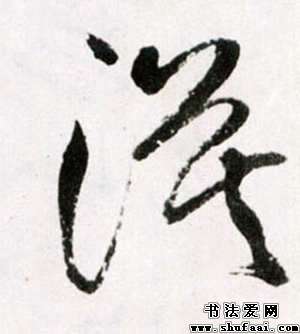 漠
书法爱网
www.shufaai.com